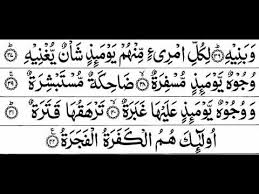 وَبَنِيْهِ ﴿٣٦﴾ لِكُلِّ امْرِئٍ مِّنْهُمْ يَوْمَئِذٍ شَأْنٌ يُّغْنِيْهِ ﴿٣٧﴾
وُجُوْهٌ يَّوْمَئِذٍ مُّسْفِرَةٌ ﴿٣٨﴾ ضَاحِكَةٌ مُّسْتَبْشِرَةٌ ﴿٣٩﴾
وَوُجُوْهٌ يَّوْمَئِذٍ عَلَيْهَا غَبَرَةٌ ﴿٤٠﴾ تَرْهَقُهَا قَتَرَةٌ ﴿٤١﴾
اُولٰٓئِكَ هُمُ الْكَفَرَةُ الْفَجَرَةُ ﴿٤٢﴾